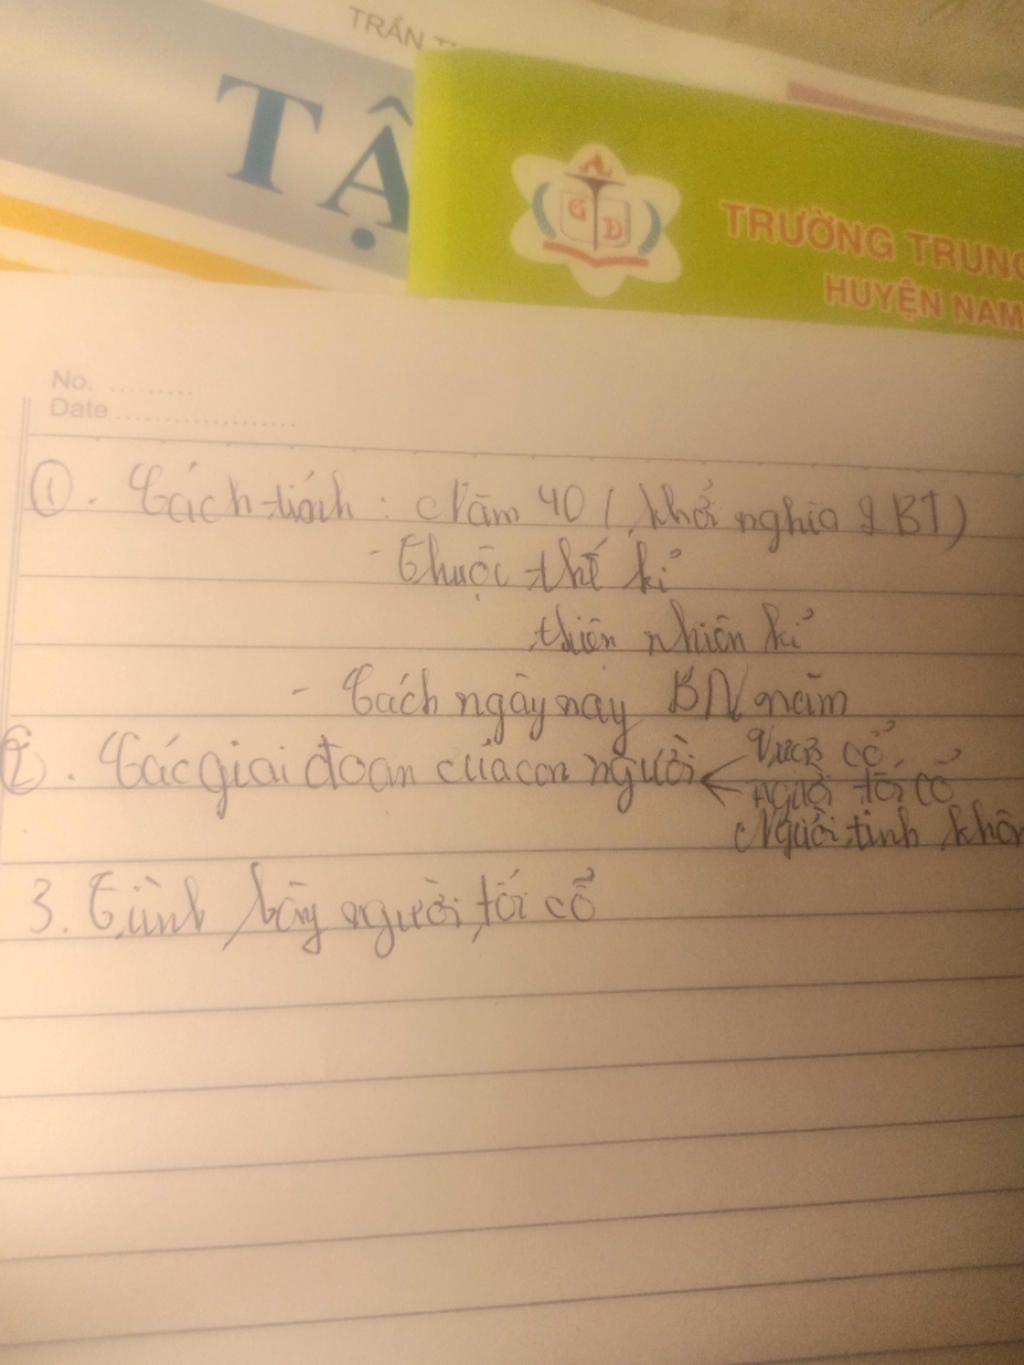 TRẦN
TẬ
A
G D
TRƯỜNG TRUNG
HUYỆN NAM
No. ..........
Date ....................
1. Cách tính: Năm 40 (khởi nghĩa 2 BT)
- Thuộc thế kỉ
thiên nhiên kỉ
- Cách ngày nay BN năm
2. Các giai đoạn của con người < Vượn cổ
người tối cổ
Người tinh khôn
3. Trình bày người tối cổ